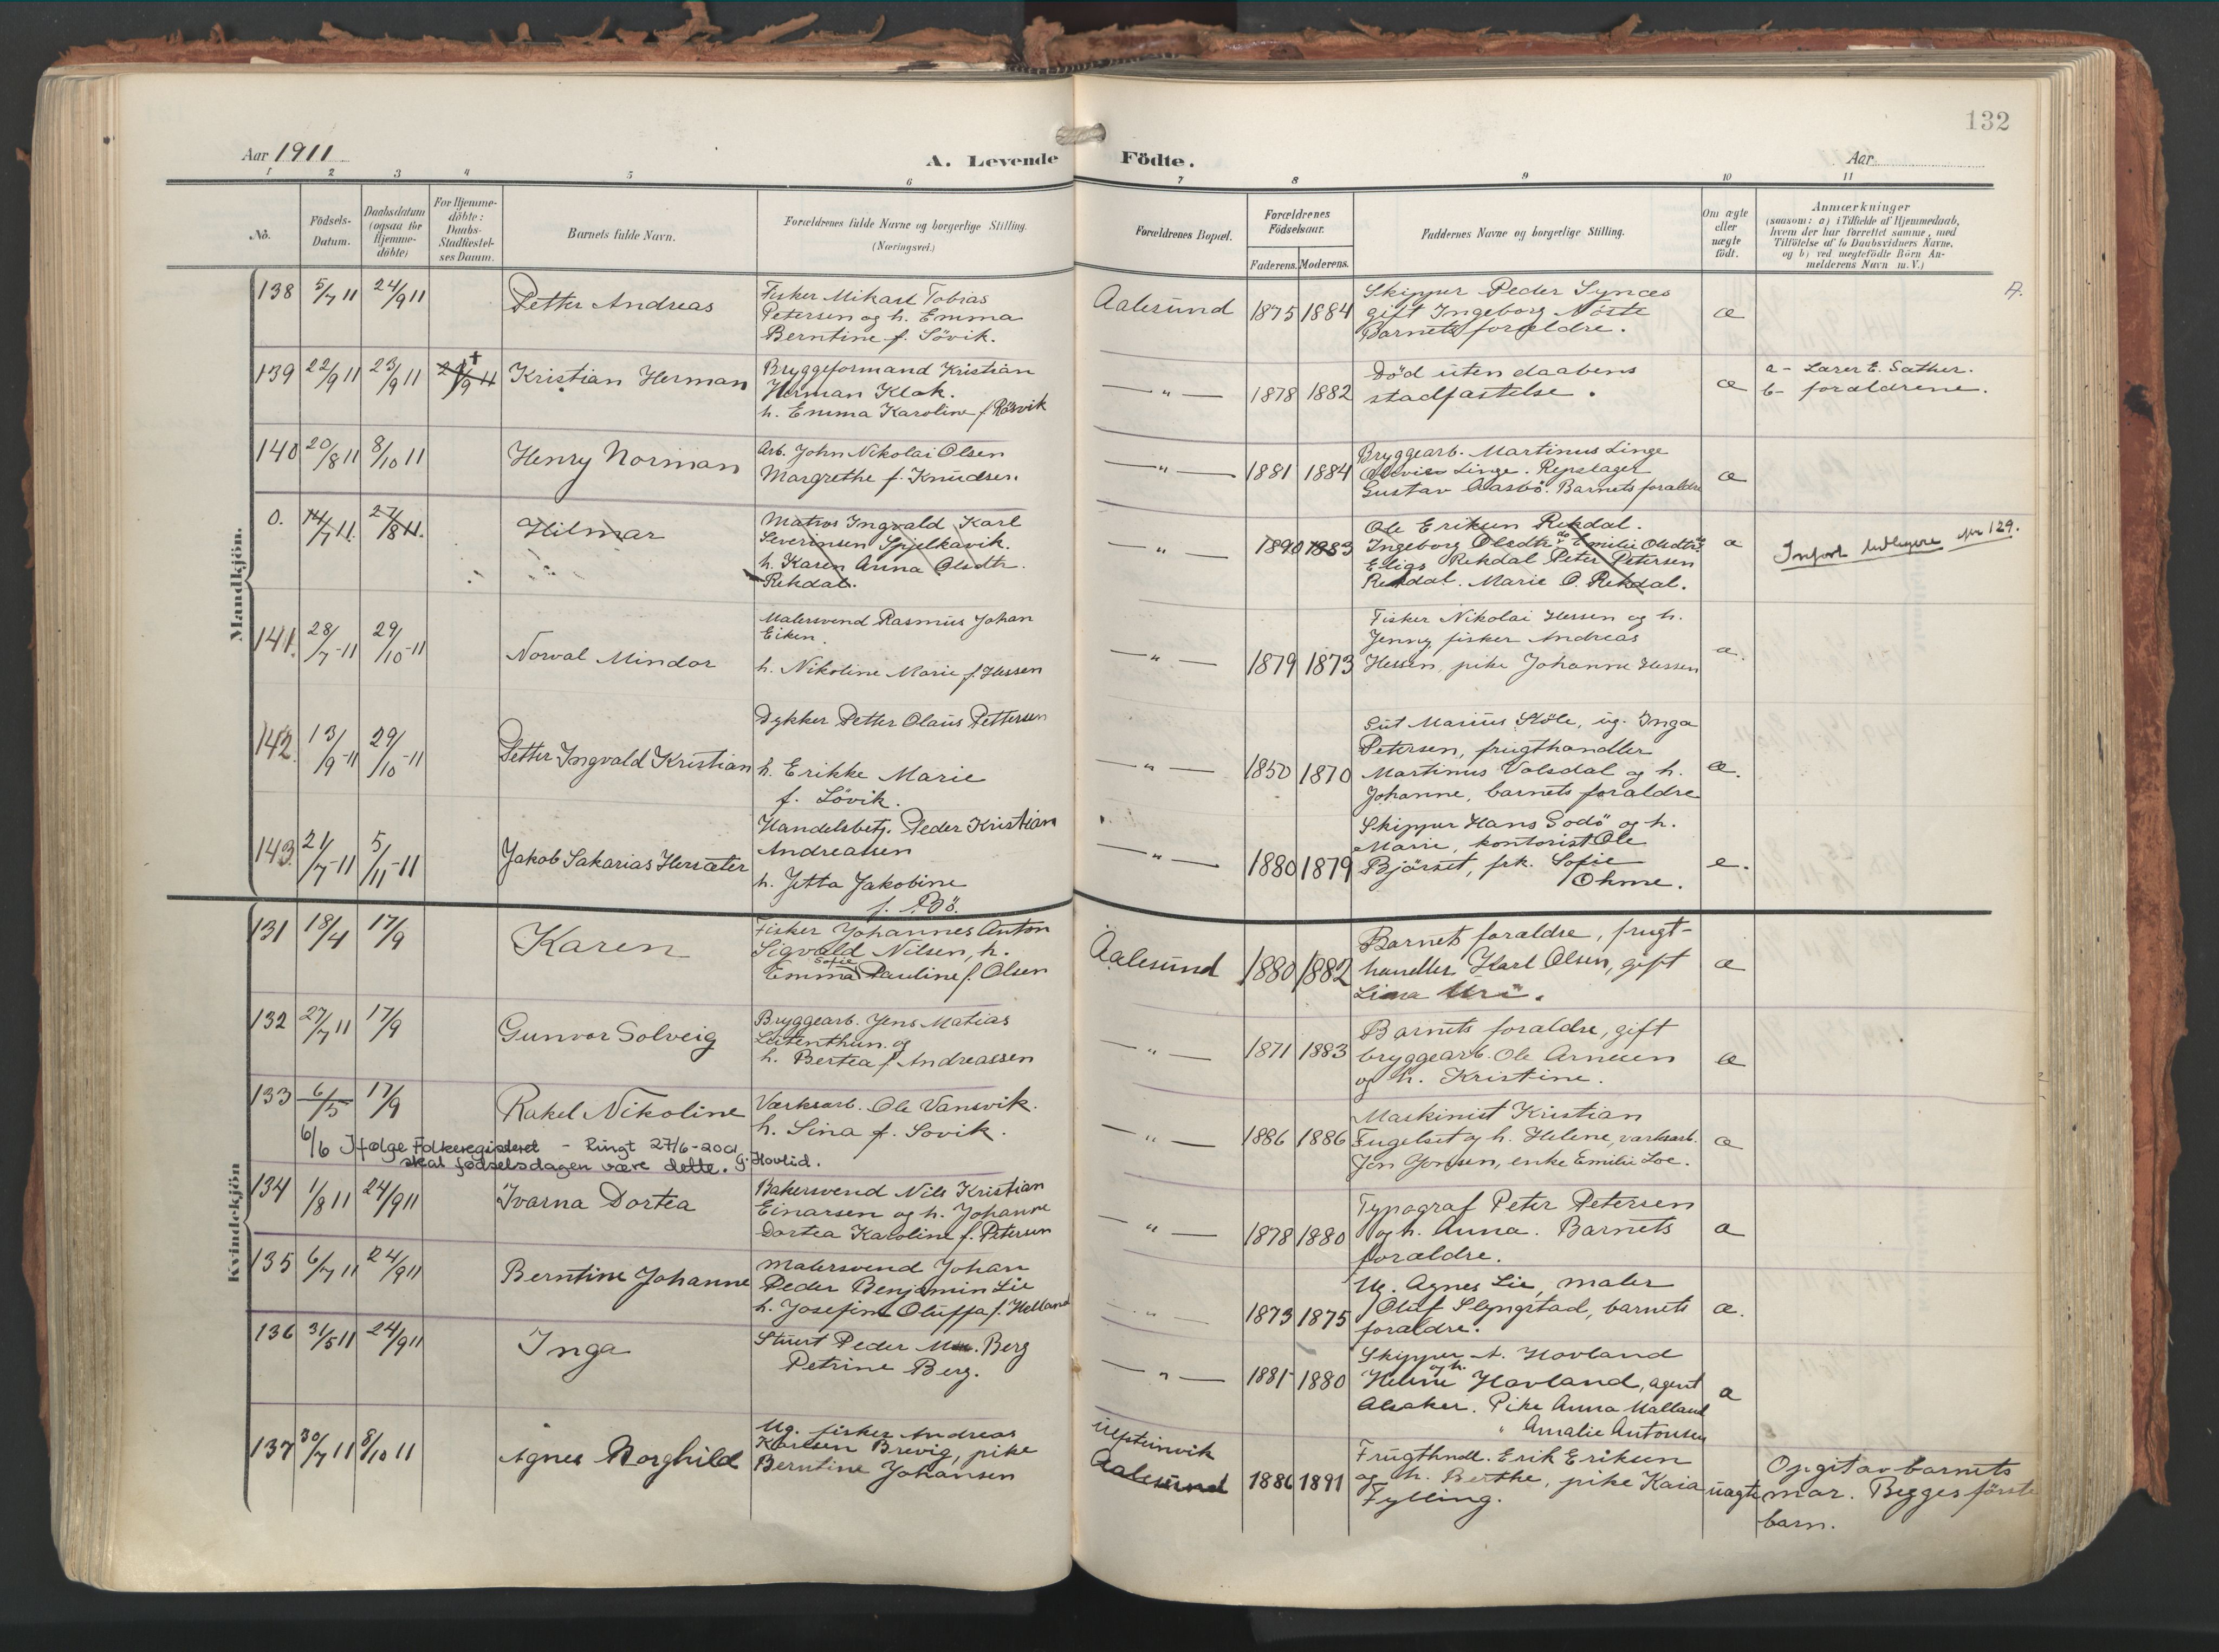 132
Aar 1911
A. Levende Födte.
Aar
1 2 3 4 5 6 7 8 9 10 11
No.
Födsels-
Datum.
Daabsdatum
(ogsaa for
Hjemme-
döbte)
For Hjemme-
döbte:
Daabs-
Stadfæstel-
ses Datum.
Barnets fulde Navn.
Forældrenes fulde Navne og borgerlige Stilling.
(Næringsvei.)
Forældrenes Bopæl.
Forældrenes
Födselsaar.
Faderens. Moderens.
Faddernes Navne og borgerlige Stilling.
Om ægte
eller
uægte
födt.
Anmærkninger
(saasom: a) i Tilfælde af Hjemmedaab,
hvem der har forrettet samme, med
Tilföielse af to Daabsvidners Navne,
og b) ved uægtefödte Börn An-
melderens Navn m. V.)
Mandkjön.
138 5/7 11 24/9 11
Petter Andreas
Fisker Mikael Tobias
Petersen og h. Emma
Berntine f. Sövik.
Aalesund 1875 1884
Skipper Peder Synces
gift Ingeborg Nörte
Barnets forældre.
æ
139 22/9 11 23/9 11
Kristian Herman
Bryggeformand Kristian
Herman Klok.
h. Emma Karoline f. Rösvik
— " — 1878 1882
Död uten daabens
stadfæstelse.
æ
a - Lærer E. Sæther.
b- forældrene.
140 20/8 11 8/10 11
Henry Norman
Arb. John Nikolai Olsen
Margrethe f. Knudsen.
— " — 1881 1884
Bryggearb. Martinus Linge
Linge. Repslager
Gustav Aasbö. Barnets forældre
æ
0. 14/7 11. 27/8 11.
Hilmar
Matros Ingvald Karl
Severinsen Spjelkavik.
h. Karen Anna Olsdtr.
Rekdal.
— " — 1890 1883
Ole Eriksen Rekdal.
Ingeborg Olsdtr. do Emilie Olsdtr.
Elias Rekdal Peter Petersen
Rekdal. Marie O. Rekdal.
æ
Infört tidligere no 129.
141. 28/7-11 29/10-11
Norval Mindor
Malersvend Rasmus Johan
Eiken.
h. Nikoline Marie f. Hessen
— " — 1879 1873
Fisker Nikolai Hessen og h.
Jenny, fisker Andreas
Hessen, pike Johanne Hessen
æ.
142. 13/9-11 29/10-11
Petter Ingvald Kristian
Dykker Petter Olaus Pettersen
h. Erikke Marie
f. Lövik.
— " — 1850 1870
Gut Marius Stöle, ug. Inga
Petersen, frugthandler
Martinus Volsdal og h.
Johanne, barnets forældre
æ.
143. 21/7-11 5/11-11
Jakob Sakarias Hersæter
Handelsbetj. Peder Kristian
Andreassen
h. Jetta Jakobine
f. Bö.
— " — 1880 1879
Skipper Hans Godö og h.
Marie, kontorist Ole
Björset, frk. Sofie
Ohme.
e.
Kvindekjön
131 18/4 17/9
Karen
Fisker Johannes Anton
Sigvald Nilsen, h.
Sofie
Emma Pauline f. Olsen
Aalesund 1880 1882
Barnets forældre, frugt-
handler Karl Olsen, gift
Lina Uri.
æ
132 27/7 11 17/9
Gunvor Solveig
Bryggearb. Jens Matias
Leitenthun. og
h. Bertea f. Andreassen
— " — 1871 1883
Barnets forældre, gift
bryggearb. Ole Arnesen
og h. Kristine.
æ
133 6/5 17/9
Rakel Nikoline
Værksarb. Ole Vansvik.
h. Sina f. Sovik.
— " — 1886 1886
Maskinist Kristian
Fugelset og h. Helene, værksarb.
Jon Jonsen, enke Emilie Loe.
æ
6/6 Ifølge Folkeregisteret - Ringt 27/6-2001
skal fødselsdagen være dette. G. Hovlid.
134 1/8 11 24/9 11
Ivarna Dortea
Bakersvend Nils Kristian
Einarsen og h. Johanne
Dortea Karoline f. Petersen
— " — 1878 1880
Typograf Peter Petersen
og h. Anna. Barnets
forældre.
æ
135 6/7 11 24/9 11
Berntine Johanne
Malersvend Johan
Peder Benjamin Lie
h. Josefine Oluffa f. Helland
— " — 1873 1875
Ug. Agnes Lie, maler
Oluf Slyngstad, barnets
forældre.
æ.
136 31/5 11 24/9 11
Inga
Stuert Peder Berg
Petrine Berg.
— " — 1881 1880
Skipper A. Hovland
og h.
Helene Hovland, agent
Alsaker. Pike Anna Malland
" Amalie Antonsen
æ
137 30/7 11 8/10 11
Agnes Borghild
Ug. fisker Andreas
Karlsen Brevig, pike
Berntine Johansen
Ulsteinvik
Aalesund 1886 1891
Frugthndl. Erik Eriksen
og h. Berthe, pike Kaia
Fylling.
uægte
Opgit av barnets
mor. Begges förste
barn.